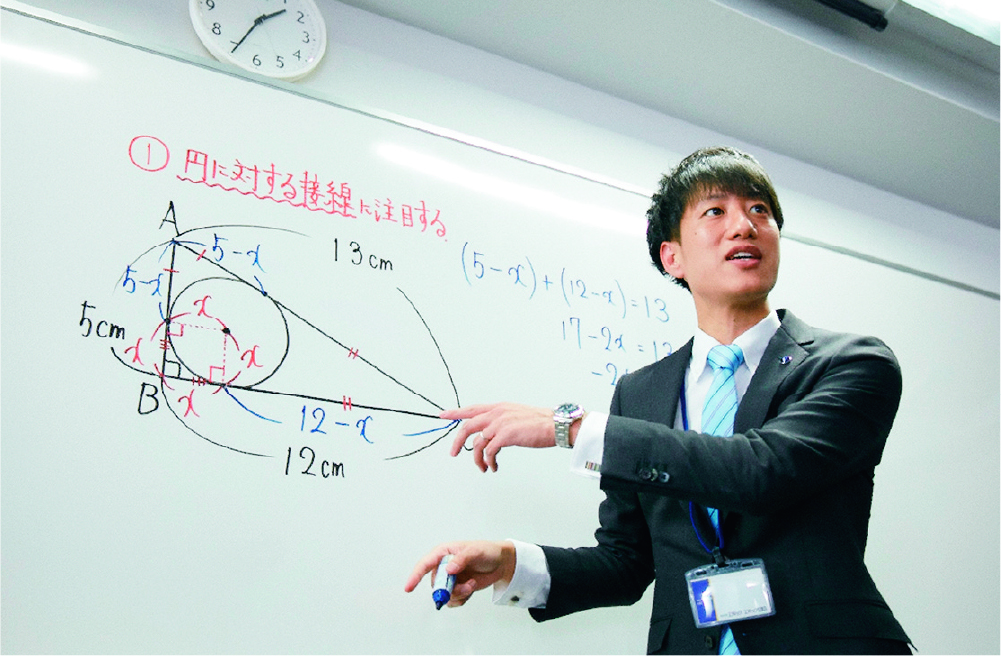 1 2 3 4 5 6 8 9
① 円に対する接線に注目する.
A
5-x
13cm
(5-x)+(12-x)=13
5-x
x
17-2x=13
5cm
x
x
-2
B
x
12-x
12cm